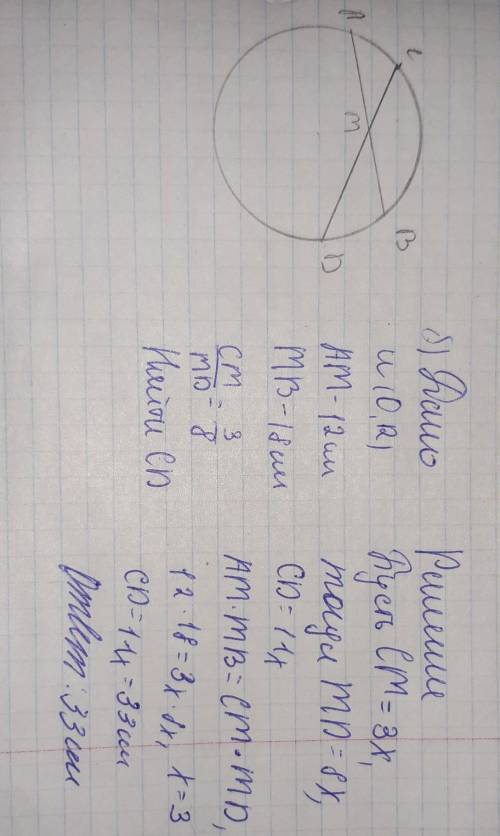 A
C
M
B
D
б) Дано
и (O, R)
AM - 12 см
MB - 18 см
CM/MD = 3/8
Найти CD
Решение
Пусть CM = 3x,
тогда MD = 8x,
CD = 11x
AM · MB = CM · MD,
12 · 18 = 3x · 8x, x = 3
CD = 11x = 33 см
Ответ: 33 см